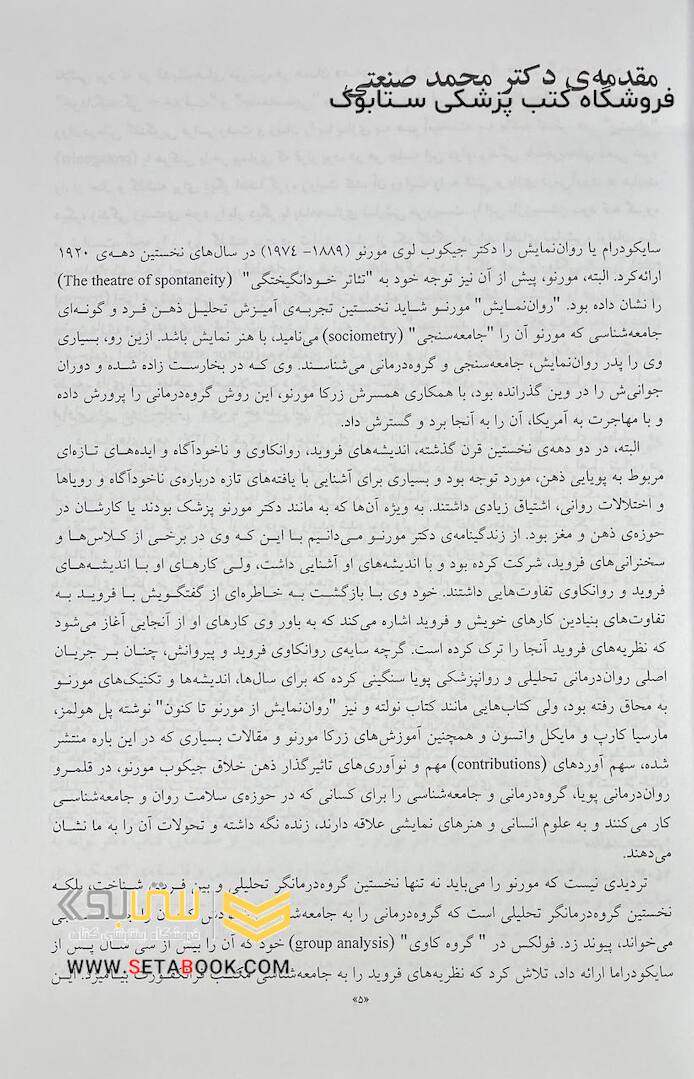 مقدمه‌ی دکتر محمد صنعتی
فروشگاه کتب پزشکی ستابوک
سایکودرام یا روان‌نمایش را دکتر جیکوب لوی مورنو (۱۸۸۹- ۱۹۷۴) در سال‌های نخستین دهه‌ی ۱۹۲۰
ارائه‌کرد. البته، مورنو، پیش از آن نیز توجه خود به "تئاتر خودانگیختگی" (The theatre of spontaneity)
را نشان داده بود. "روان‌نمایش" مورنو شاید نخستین تجربه‌ی آمیزش تحلیل ذهن فرد و گونه‌ای
جامعه‌شناسی که مورنو آن را "جامعه‌سنجی" (sociometry) می‌نامید، با هنر نمایش باشد. ازین رو، بسیاری
وی را پدر روان‌نمایش، جامعه‌سنجی و گروه‌درمانی می‌شناسند. وی که در بخارست زاده شده و دوران
جوانی‌ش را در وین گذرانده بود، با همکاری همسرش زرکا مورنو، این روش گروه‌درمانی را پرورش داده
و با مهاجرت به آمریکا، آن را به آنجا برد و گسترش داد.
البته، در دو دهه‌ی نخستین قرن گذشته، اندیشه‌های فروید، روانکاوی و ناخودآگاه و ایده‌های تازه‌ای
مربوط به پویایی ذهن، مورد توجه بود و بسیاری برای آشنایی با یافته‌های تازه درباره‌ی ناخودآگاه و رویاها
و اختلالات روانی، اشتیاق زیادی داشتند. به ویژه آن‌ها که به مانند دکتر مورنو پزشک بودند یا کارشان در
حوزه‌ی ذهن و مغز بود. از زندگینامه‌ی دکتر مورنو می‌دانیم با این که وی در برخی از کلاس‌ها و
سخنرانی‌های فروید، شرکت کرده بود و با اندیشه‌های او آشنایی داشت، ولی کارهای او با اندیشه‌های
فروید و روانکاوی تفاوت‌هایی داشتند. خود وی با بازگشت به خاطره‌ای از گفتگویش با فروید به
تفاوت‌های بنیادین کارهای خویش و فروید اشاره می‌کند که به باور وی کارهای او از آنجایی آغاز می‌شود
که نظریه‌های فروید آنجا را ترک کرده است. گرچه سایه‌ی روانکاوی فروید و پیروانش، چنان بر جریان
اصلی روان‌درمانی تحلیلی و روانپزشکی پویا سنگینی کرده که برای سال‌ها، اندیشه‌ها و تکنیک‌های مورنو
به محاق رفته بود، ولی کتاب‌هایی مانند کتاب نولته و نیز "روان‌نمایش از مورنو تا کنون" نوشته پل هولمز،
مارسیا کارپ و مایکل واتسون و همچنین آموزش‌های زرکا مورنو و مقالات بسیاری که در این باره منتشر
شده، سهم آوردهای (contributions) مهم و نوآوری‌های تاثیرگذار ذهن خلاق جیکوب مورنو، در قلمرو
روان‌درمانی پویا، گروه‌درمانی و جامعه‌شناسی را برای کسانی که در حوزه‌ی سلامت روان و جامعه‌شناسی
کار می‌کنند و به علوم انسانی و هنرهای نمایشی علاقه دارند، زنده نگه داشته و تحولات آن را به ما نشان
می‌دهند.
تردیدی نیست که مورنو را می‌باید نه تنها نخستین گروه‌درمانگر تحلیلی و بین فردی شناخت، بلکه
نخستین گروه‌درمانگر تحلیلی است که گروه‌درمانی را به
می‌خواند، پیوند زد. فولکس در " گروه کاوی" (group analysis) خود که آن را بیش از سی سال پس از
سایکودراما ارائه داد، تلاش کرد که نظریه‌های فروید را به جامعه‌شناسی مکتب فرانکفورت بیامیزد. این
ستابوک
فروشگاه اینترنتی کتاب
WWW.SETABOOK.COM
«۵»